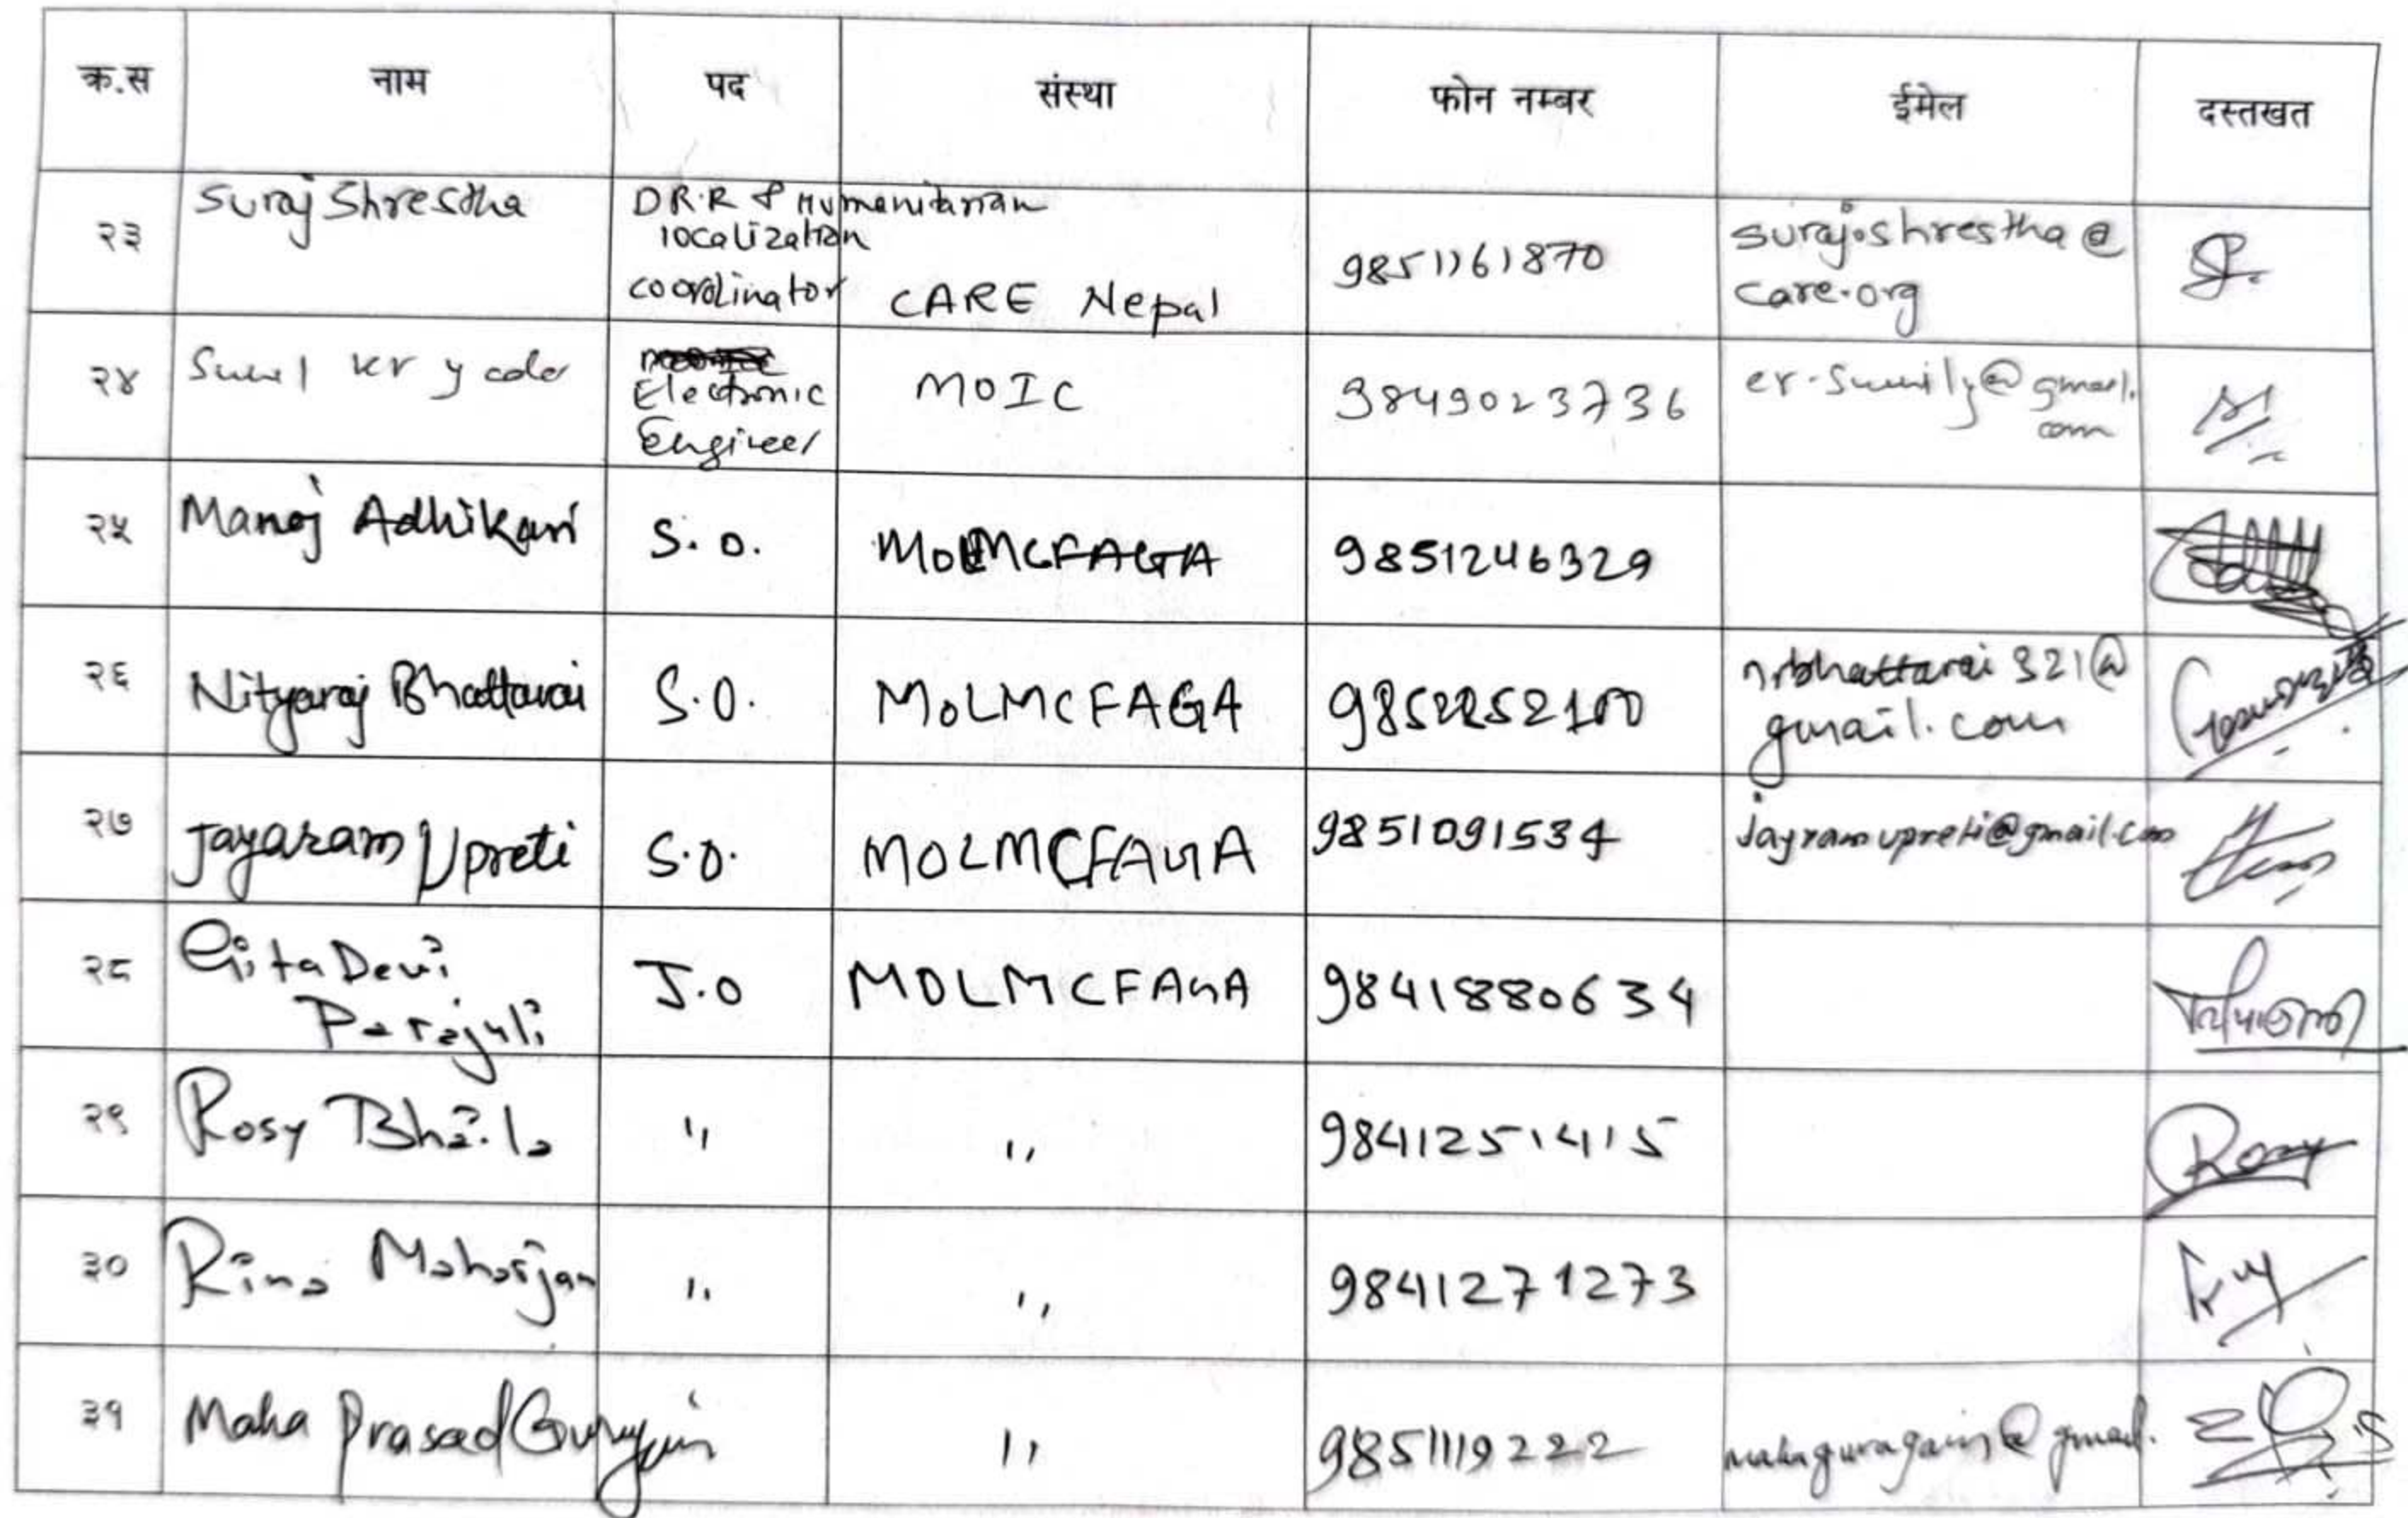 क्र.स नाम पद संस्था फोन नम्बर ईमेल दस्तखत
२३ Suraj Shrestha DR.R & Humanitarian localization coordinator CARE Nepal 9851161870 suraj.shrestha@care.org
२४ Sunil kr yadav Electronic Engineer MOIC 9849023736 er.sunily@gmail.com
२५ Manoj Adhikari S.O. MOLMCFAGA 9851246329
२६ Nityaraj Bhattarai S.O. MOLMCFAGA nrbhattarai321@gmail.com
२७ Jayaram Upreti S.O. MOLMCFAGA 9851091534 jayramupreti@gmail.com
२८ Gita Devi Parajuli J.O MOLMCFAGA 9841880634
२९ Rosy Bhaila " " 9841251415 Rosy
३० Rina Maharjan " " 9841271273
३१ Maha Prasad Guragain " 9851119222 mahaguragain@gmail.